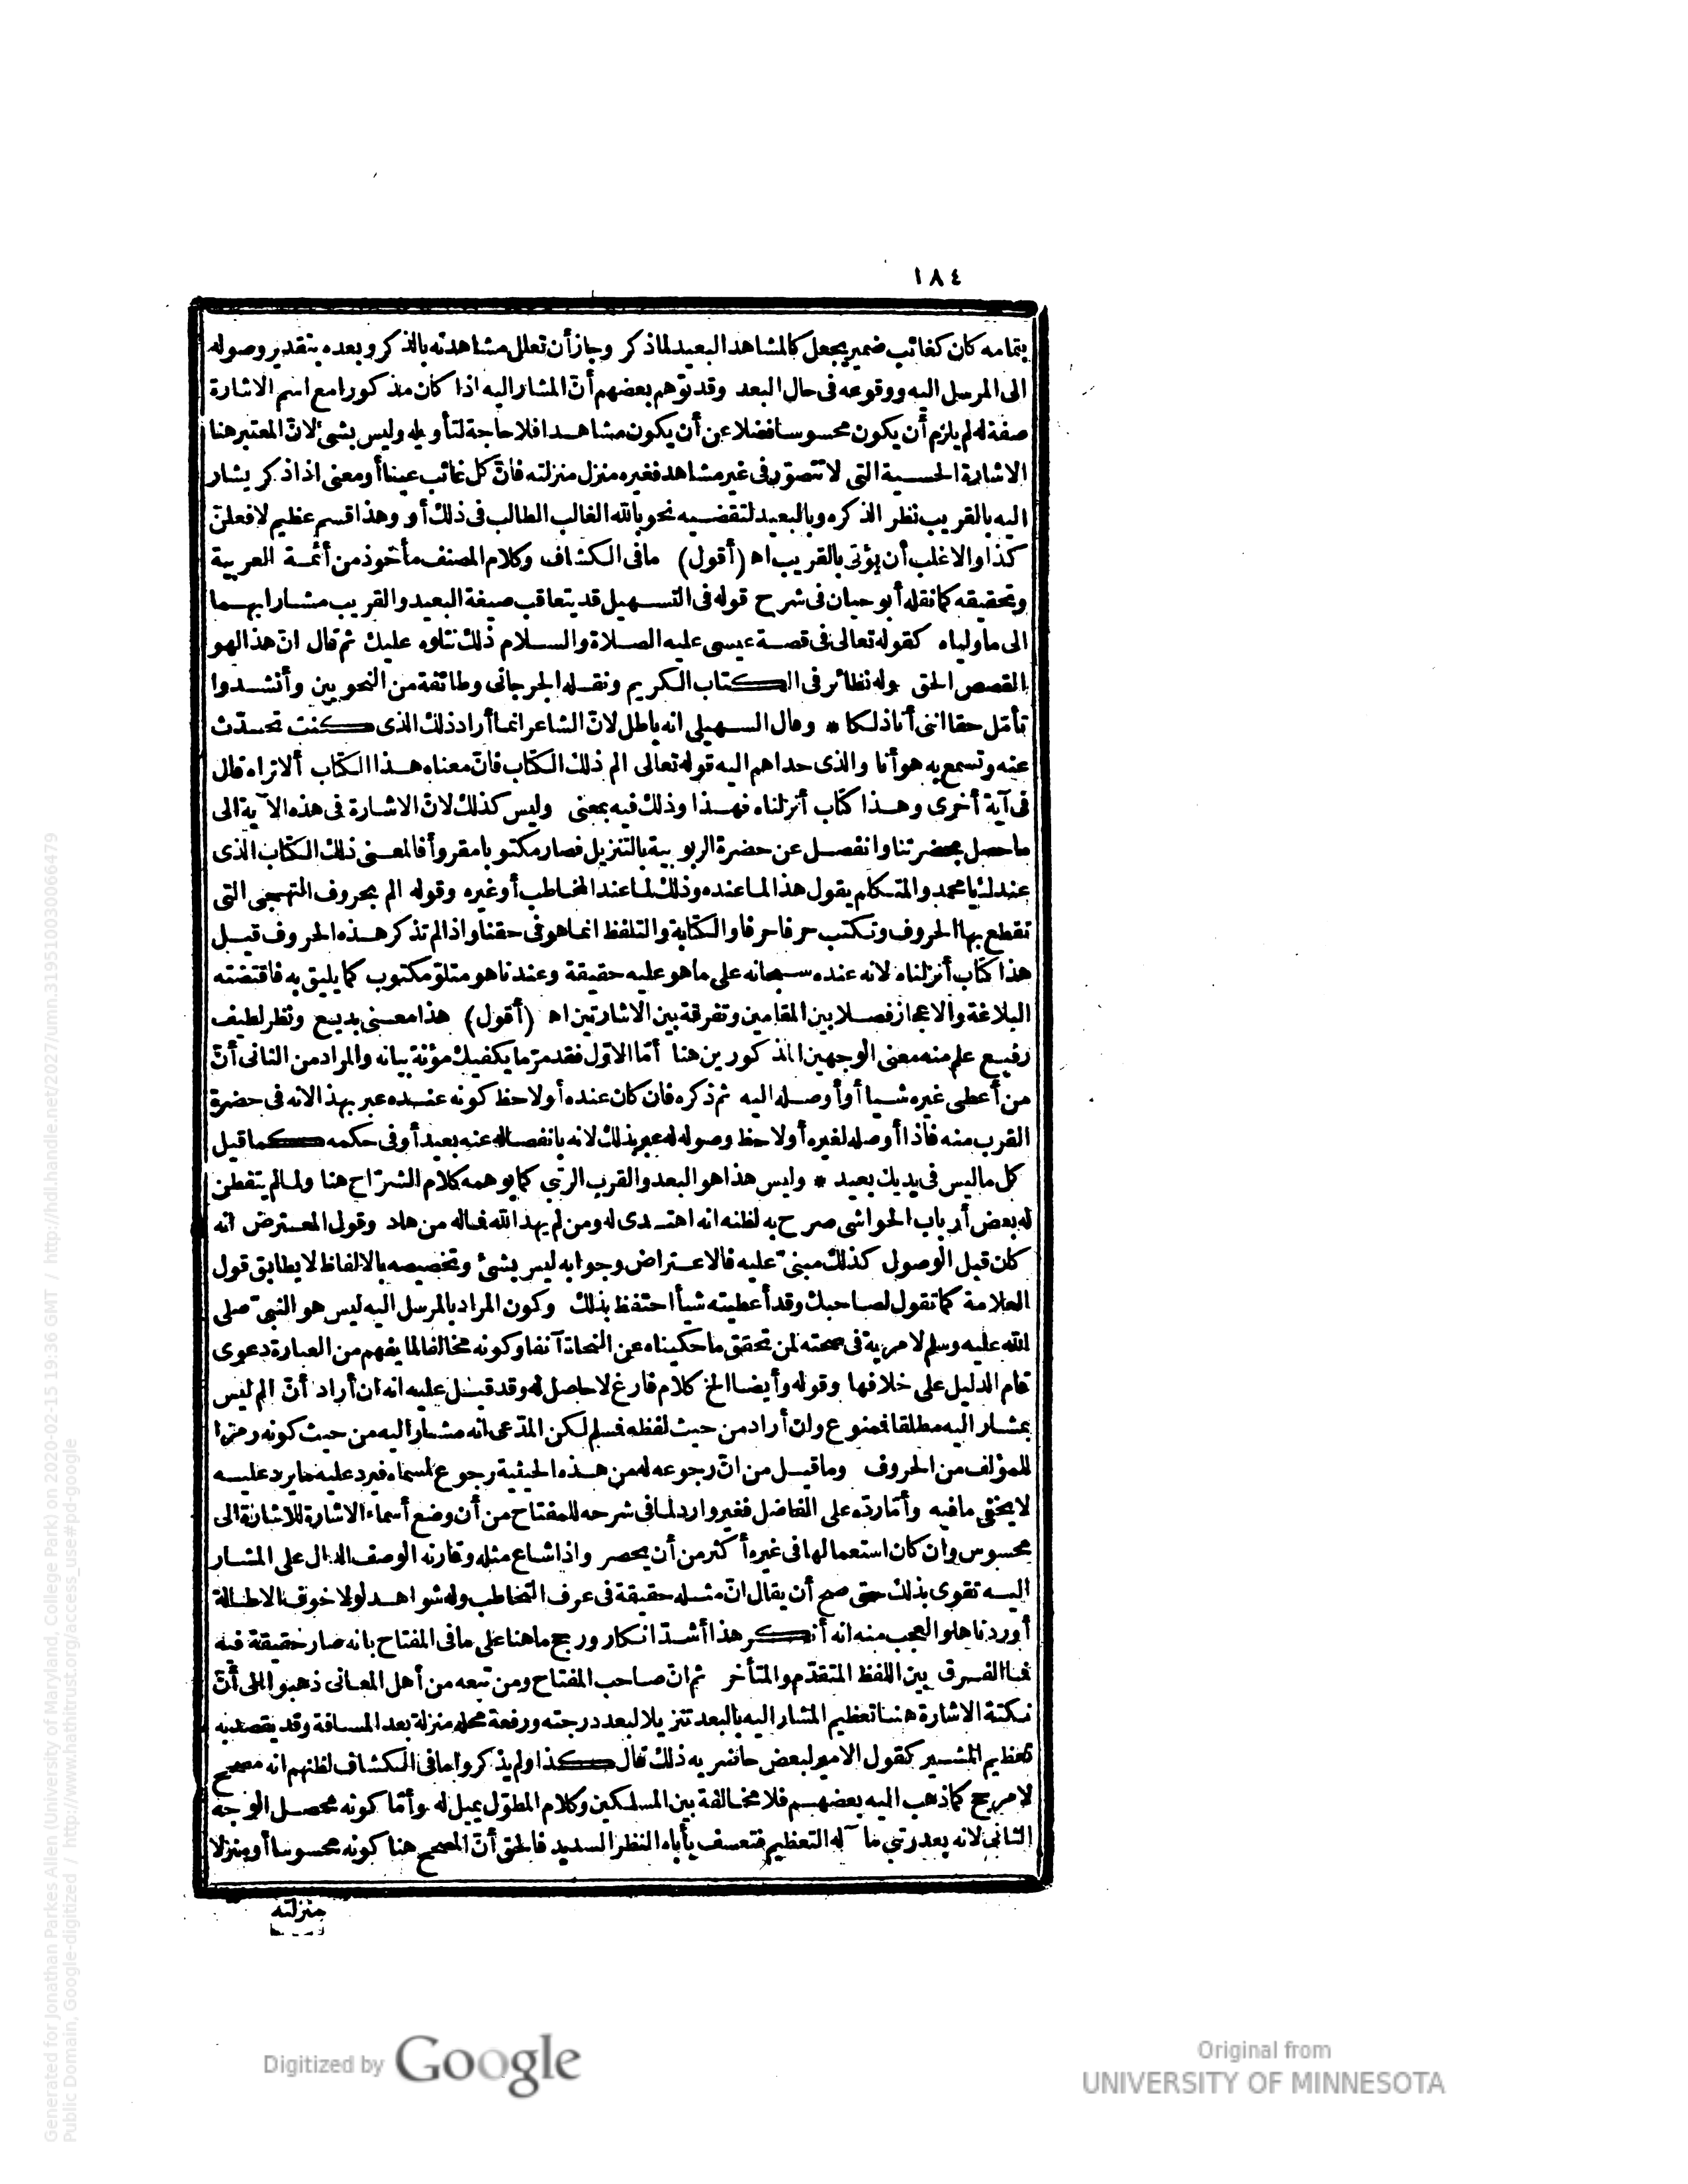 ١٨٤
بتمامه كان كغائب ضمير يجعل كالمشاهد البعيد لما ذكر وجاز أن تعلل مشاهدته بالذكر وبعده بتقدير وصوله
الى المرسل اليه ووقوعه فى حال البعد وقد توهم بعضهم أنّ المشار اليه اذا كان مذكورا مع اسم الاشارة
صفة له لم يلزم أن يكون محسوسا فضلا عن أن يكون مشاهدا فلا حاجة لتأويله وليس بشئ لانّ المعتبر هنا
الاشارة الحسية التى لا تتصوّر فى غير مشاهد فغيره منزل منزلته فانّ كل غائب عينا أو معنى اذا ذكر يشار
اليه بالقريب نظر الذكره وبالبعيد لتقضيه نحو بالله الغالب الطالب فى ذلك أو وهذا قسم عظيم لافعلنّ
كذا والاغلب أن يؤتى بالقريب اه (أقول) مافى الكشاف وكلام المصنف مأخوذ من أئمة العربية
وتحقيقه كما نقله أبو حيان فى شرح قوله فى التسهيل قد يتعاقب صيغة البعيد والقريب مشارا بهما
الى ماولياه كقوله تعالى فى قصة عيسى عليه الصلاة والسلام ذلك نتلوه عليك ثم قال انّ هذا لهو
القصص الحق وله نظائر فى الكتاب الكريم ونقله الجرجانى وطائفة من النحويين وأنشدوا
تأمّل حقا اننى أنا ذلكا * وقال السهيلى انه باطل لانّ الشاعر انما أراد ذلك الذى كنت تحدّث
عنه وتسمع به هو أنا والذى حداهم اليه قوله تعالى الم ذلك الكتاب فانّ معناه هذا الكتاب ألا تراه قال
فى آية أخرى وهذا كتاب أنزلناه فهذا وذلك فيه بمعنى وليس كذلك لانّ الاشارة فى هذه الآية الى
ماحصل بحضرتنا وانفصل عن حضرة الربوبية بالتنزيل فصار مكتوبا مقروأ فالمعنى ذلك الكتاب الذى
عندك يا محمد والمتكلم يقول هذا لما عنده وذلك لما عند المخاطب أو غيره وقوله الم بحروف التهجى التى
تقطع بها الحروف وتكتب حرفا حرفا والكتابة والتلفظ انما هو فى حقنا واذا لم تذكر هذه الحروف قيل
هذا كتاب أنزلناه لانه عنده سبحانه على ماهو عليه حقيقة وعندنا هو متلوّ مكتوب كما يليق به فاقتضته
البلاغة والاعجاز فصلا بين المقامين وتفرقة بين الاشارتين اه (أقول) هذا معنى بديع ونظر لطيف
رفيع علم منه معنى الوجهين المذكورين هنا أمّا الاوّل فقد مرّ ما يكفيك مؤنة بيانه والمراد من الثانى أنّ
من أعطى غيره شيأ أو أوصله اليه ثم ذكره فان كان عنده أو لاحظ كونه عنده عبر بهذا لانه فى حضرة
القرب منه فاذا أوصله لغيره أو لاحظ وصوله له عبر بذلك لانه بانفصاله عنه بعيد أو فى حكمه كما قيل
كل ماليس فى يديك بعيد * وليس هذا هو البعد والقرب الرتبى كما يوهمه كلام الشرّاح هنا ولما لم يتفطن
له بعض أرباب الحواشى صرح به لظنه انه اهتدى له ومن لم يهد الله فماله من هاد وقول المعترض انه
كان قبل الوصول كذلك مبنىّ عليه فالاعتراض وجوابه ليس بشئ وتخصيصه بالالفاظ لا يطابق قول
العلامة كما تقول لصاحبك وقد أعطيته شيأ احتفظ بذلك وكون المراد بالمرسل اليه ليس هو النبىّ صلى
الله عليه وسلم لا مرية فى صحته لمن تحقق ماحكيناه عن النحاة آنفا وكونه مخالفا لما يفهم من العبارة دعوى
قام الدليل على خلافها وقوله وأيضا الخ كلام فارغ لا حاصل له وقد قيل عليه انه ان أراد أنّ الم ليس
بمشار اليه مطلقا فممنوع وان أراد من حيث لفظه فسلم لكن المدّعى انه مشار اليه من حيث كونه رمزا
للمؤلف من الحروف وما قيل من انّ رجوعه له من هذه الحيثية رجوع لمسماه فيرد عليه ما يرد عليه
لا يخفى مافيه وأمّا ردّه على الفاضل فغير وارد لما فى شرحه للمفتاح من أن وضع أسماء الاشارة للاشارة الى
محسوس وان كان استعمالها فى غيره أكثر من أن يحصر واذا شاع مثله وقارنه الوصف الدال على المشار
اليه تقوى بذلك حتى صح أن يقال انّ مثله حقيقة فى عرف التخاطب وله شواهد لولا خوف الاطالة
أوردناها والعجب منه انه أنكر هذا أشدّ انكار ورجح ما هنا على ما فى المفتاح بانه صار حقيقة فيه
فما الفرق بين اللفظ المتقدّم والمتأخر ثم انّ صاحب المفتاح ومن تبعه من أهل المعانى ذهبوا الى أنّ
نكتة الاشارة هنا تعظيم المشار اليه بالبعد تنزيلا لبعد درجته ورفعة محله منزلة بعد المسافة وقد يقصد به
تعظيم المشير كقول الامير لبعض حاضريه ذلك قال كذا ولم يذكروا ما فى الكشاف لظنهم انه مصحح
لا مرجح كما ذهب اليه بعضهم فلا مخالفة بين المسلكين وكلام المطوّل يميل له وأمّا كونه محصل الوجه
الثانى لانه بعد رتبى مآله التعظيم فتعسف يأباه النظر السديد فالحق أنّ المصحح هنا كونه محسوسا أو منزلا
منزلته
Digitized by Google
Original from
UNIVERSITY OF MINNESOTA
Generated for Jonathan Parkes Allen (University of Maryland, College Park) on 2020-02-15 19:36 GMT / http://hdl.handle.net/2027/umn.31951003006647 9
Public Domain, Google-digitized / http://www.hathitrust.org/access_use#pd-google